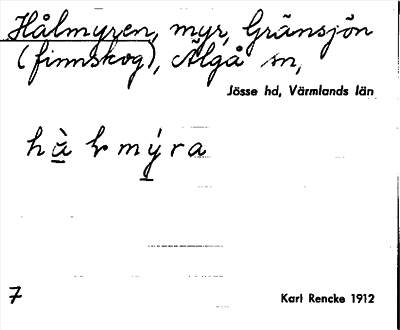 Hålmyren, myr, Gränsjön
(finnskog), Älgå sn,
Jösse hd, Värmlands län
7
Karl Rencke 1912